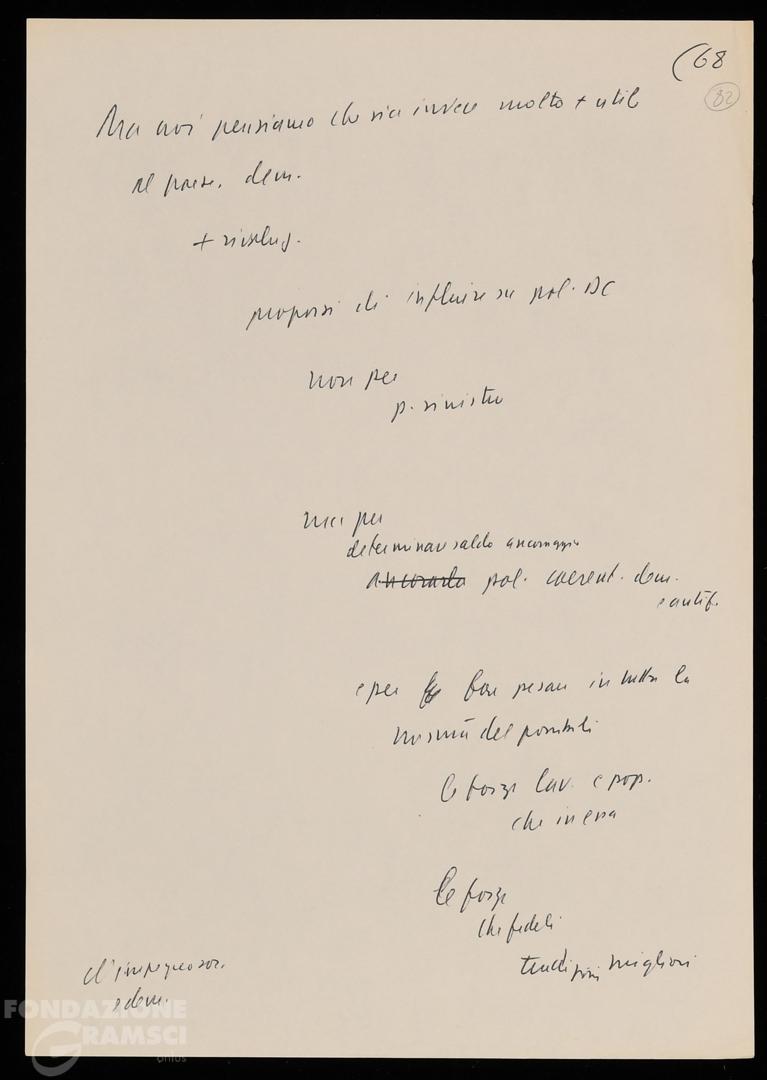 (68
82
Ma noi pensiamo che sia invece molto + utile
al paese. dem.
+ rivoluz.
proporsi di influire su pol. DC
non per
p. sinistra
ma per
determinare saldo ancoraggio
ancorarla pol. coerent. dem.
e antif.
e per far pesare in tutta la
misura del possibile
le forze lav. e pop.
che in essa
le forze
che fedeli
tradizioni migliori
d'impegno soc.
e dem.
FONDAZIONE
GRAMSCI
onlus